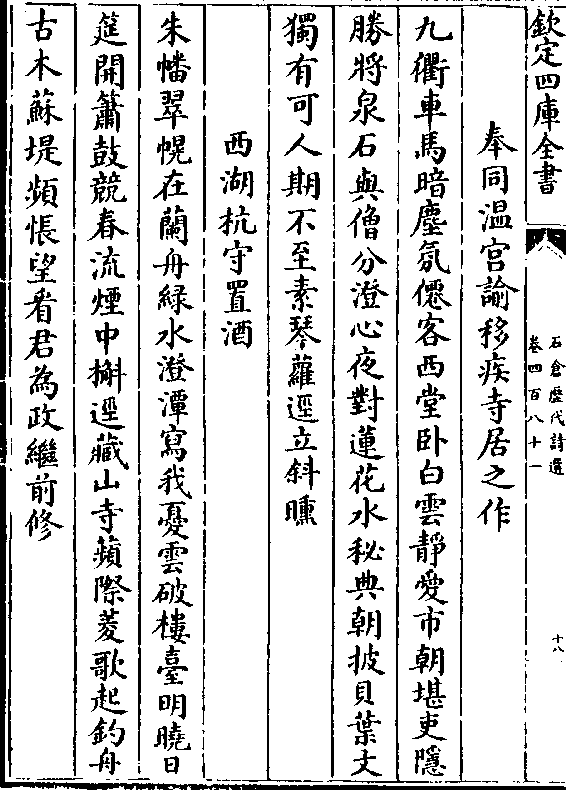 欽定四庫全書
石倉歷代詩選
卷四百八十一
十八
奉同温宫諭移疾寺居之作
九衢車馬暗塵氛僊客西堂卧白雲靜愛市朝堪吏隱
勝將泉石與僧分澄心夜對蓮花水秘典朝披貝葉文
獨有可人期不至素琴蘿逕立斜曛
西湖杭守置酒
朱幡翠幌在蘭舟緑水澄潭寫我憂雲破樓臺明曉日
筵開簫鼓競春流煙中檞逕藏山寺蘋際菱歌起釣舟
古木蘇堤頻悵望看君為政繼前修